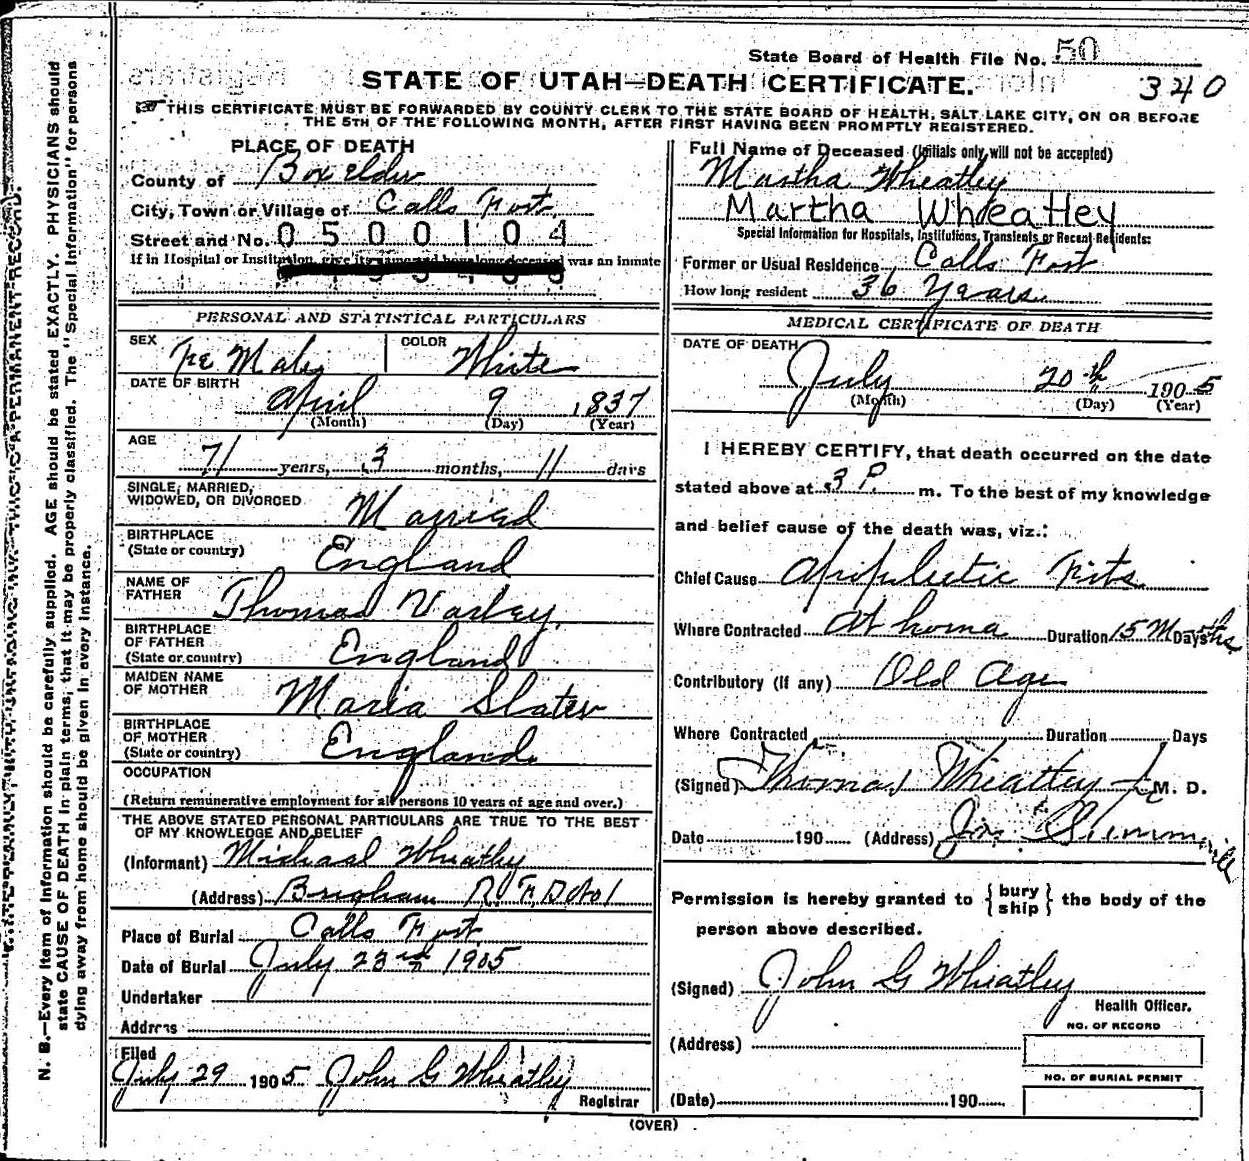 State Board of Health File No. 50
STATE OF UTAH—DEATH CERTIFICATE.
340
THIS CERTIFICATE MUST BE FORWARDED BY COUNTY CLERK TO THE STATE BOARD OF HEALTH, SALT LAKE CITY, ON OR BEFORE
THE 5TH OF THE FOLLOWING MONTH, AFTER FIRST HAVING BEEN PROMPTLY REGISTERED.
N. B.—Every item of Information should be carefully supplied. AGE should be stated EXACTLY. PHYSICIANS should
state CAUSE OF DEATH in plain terms, that it may be properly classified. The "Special Information" for persons
dying away from home should be given in every instance.
PLACE OF DEATH
County of Box Elder
City, Town or Village of Calls Fort
Street and No. 0500104
If in Hospital or Institution, give its name and how long deceased was an inmate
PERSONAL AND STATISTICAL PARTICULARS
SEX Fe Male COLOR White
DATE OF BIRTH
April 9 1837
(Month) (Day) (Year)
AGE
71 years, 3 months, 11 days
SINGLE, MARRIED,
WIDOWED, OR DIVORCED Married
BIRTHPLACE
(State or country) England
NAME OF
FATHER Thomas Varley
BIRTHPLACE
OF FATHER
(State or country) England
MAIDEN NAME
OF MOTHER Maria Slater
BIRTHPLACE
OF MOTHER
(State or country) England
OCCUPATION
(Return remunerative employment for all persons 10 years of age and over.)
THE ABOVE STATED PERSONAL PARTICULARS ARE TRUE TO THE BEST
OF MY KNOWLEDGE AND BELIEF
(Informant) Michael Wheatley
(Address) Brigham R. F. D No 1
Place of Burial Calls Fort
Date of Burial July 23rd 1905
Undertaker
Address
Filed
July 29 1905 John G Wheatley
Registrar
Full Name of Deceased (Initials only will not be accepted)
Martha Wheatley
Martha Wheatley
Special Information for Hospitals, Institutions, Transients or Recent Residents:
Former or Usual Residence Calls Fort
How long resident 36 Years
MEDICAL CERTIFICATE OF DEATH
DATE OF DEATH
July 20th 1905
(Month) (Day) (Year)
I HEREBY CERTIFY, that death occurred on the date
stated above at 3 P. m. To the best of my knowledge
and belief cause of the death was, viz.:
Chief Cause Apipluetic Fits
Where Contracted At home Duration 15 Mths Days
Contributory (If any) Old Age
Where Contracted Duration Days
(Signed) Thomas Wheatley M. D.
Date 190 (Address)
Permission is hereby granted to {bury ship} the body of the
person above described.
(Signed) John G Wheatley
Health Officer.
NO. OF RECORD
(Address)
NO. OF BURIAL PERMIT
(Date) 190
(OVER)